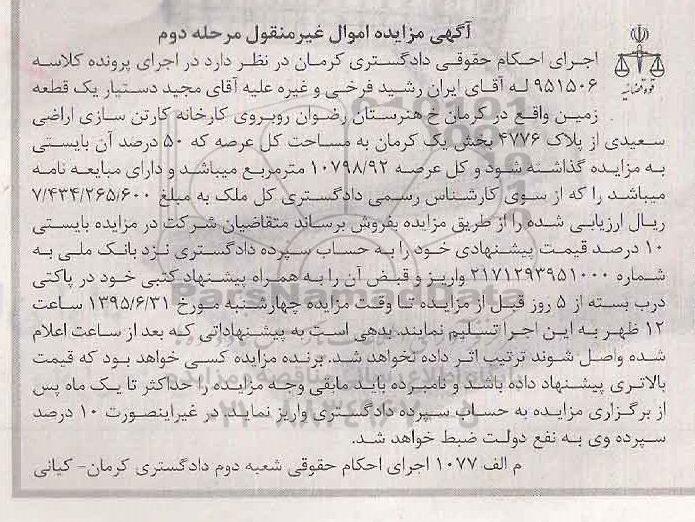 آگهی مزایده اموال غیرمنقول مرحله دوم
قوه قضائیه
اجرای احکام حقوقی دادگستری کرمان در نظر دارد در اجرای پرونده کلاسه
۹۵۱۵۰۶ له آقای ایران رشید فرخی و غیره علیه آقای مجید دستیار یک قطعه
زمین واقع در کرمان خ هنرستان رضوان روبروی کارخانه کارتن سازی اراضی
سعیدی از پلاک ۴۷۷۶ بخش یک کرمان به مساحت کل عرصه که ۵۰ درصد آن بایستی
به مزایده گذاشته شود و کل عرصه ۱۰۷۹۸/۹۲ مترمربع میباشد و دارای مبایعه نامه
میباشد را که از سوی کارشناس رسمی دادگستری کل ملک به مبلغ ۷/۴۳۴/۲۶۵/۶۰۰
ریال ارزیابی شده را از طریق مزایده بفروش برساند متقاضیان شرکت در مزایده بایستی
۱۰ درصد قیمت پیشنهادی خود را به حساب سپرده دادگستری نزد بانک ملی به
شماره ۲۱۷۱۲۹۳۹۵۱۰۰۰ واریز و قبض آن را به همراه پیشنهاد کتبی خود در پاکتی
درب بسته از ۵ روز قبل از مزایده تا وقت مزایده چهارشنبه مورخ ۱۳۹۵/۶/۳۱ ساعت
۱۲ ظهر به این اجرا تسلیم نمایند. بدهی است به پیشنهاداتی که بعد از ساعت اعلام
شده واصل شوند ترتیب اثر داده نخواهد شد. برنده مزایده کسی خواهد بود که قیمت
بالاتری پیشنهاد داده باشد و نامبرده باید مابقی وجه مزایده را حداکثر تا یک ماه پس
از برگزاری مزایده به حساب سپرده دادگستری واریز نماید. در غیراینصورت ۱۰ درصد
سپرده وی به نفع دولت ضبط خواهد شد.
م الف ۱۰۷۷ اجرای احکام حقوقی شعبه دوم دادگستری کرمان- کیانی